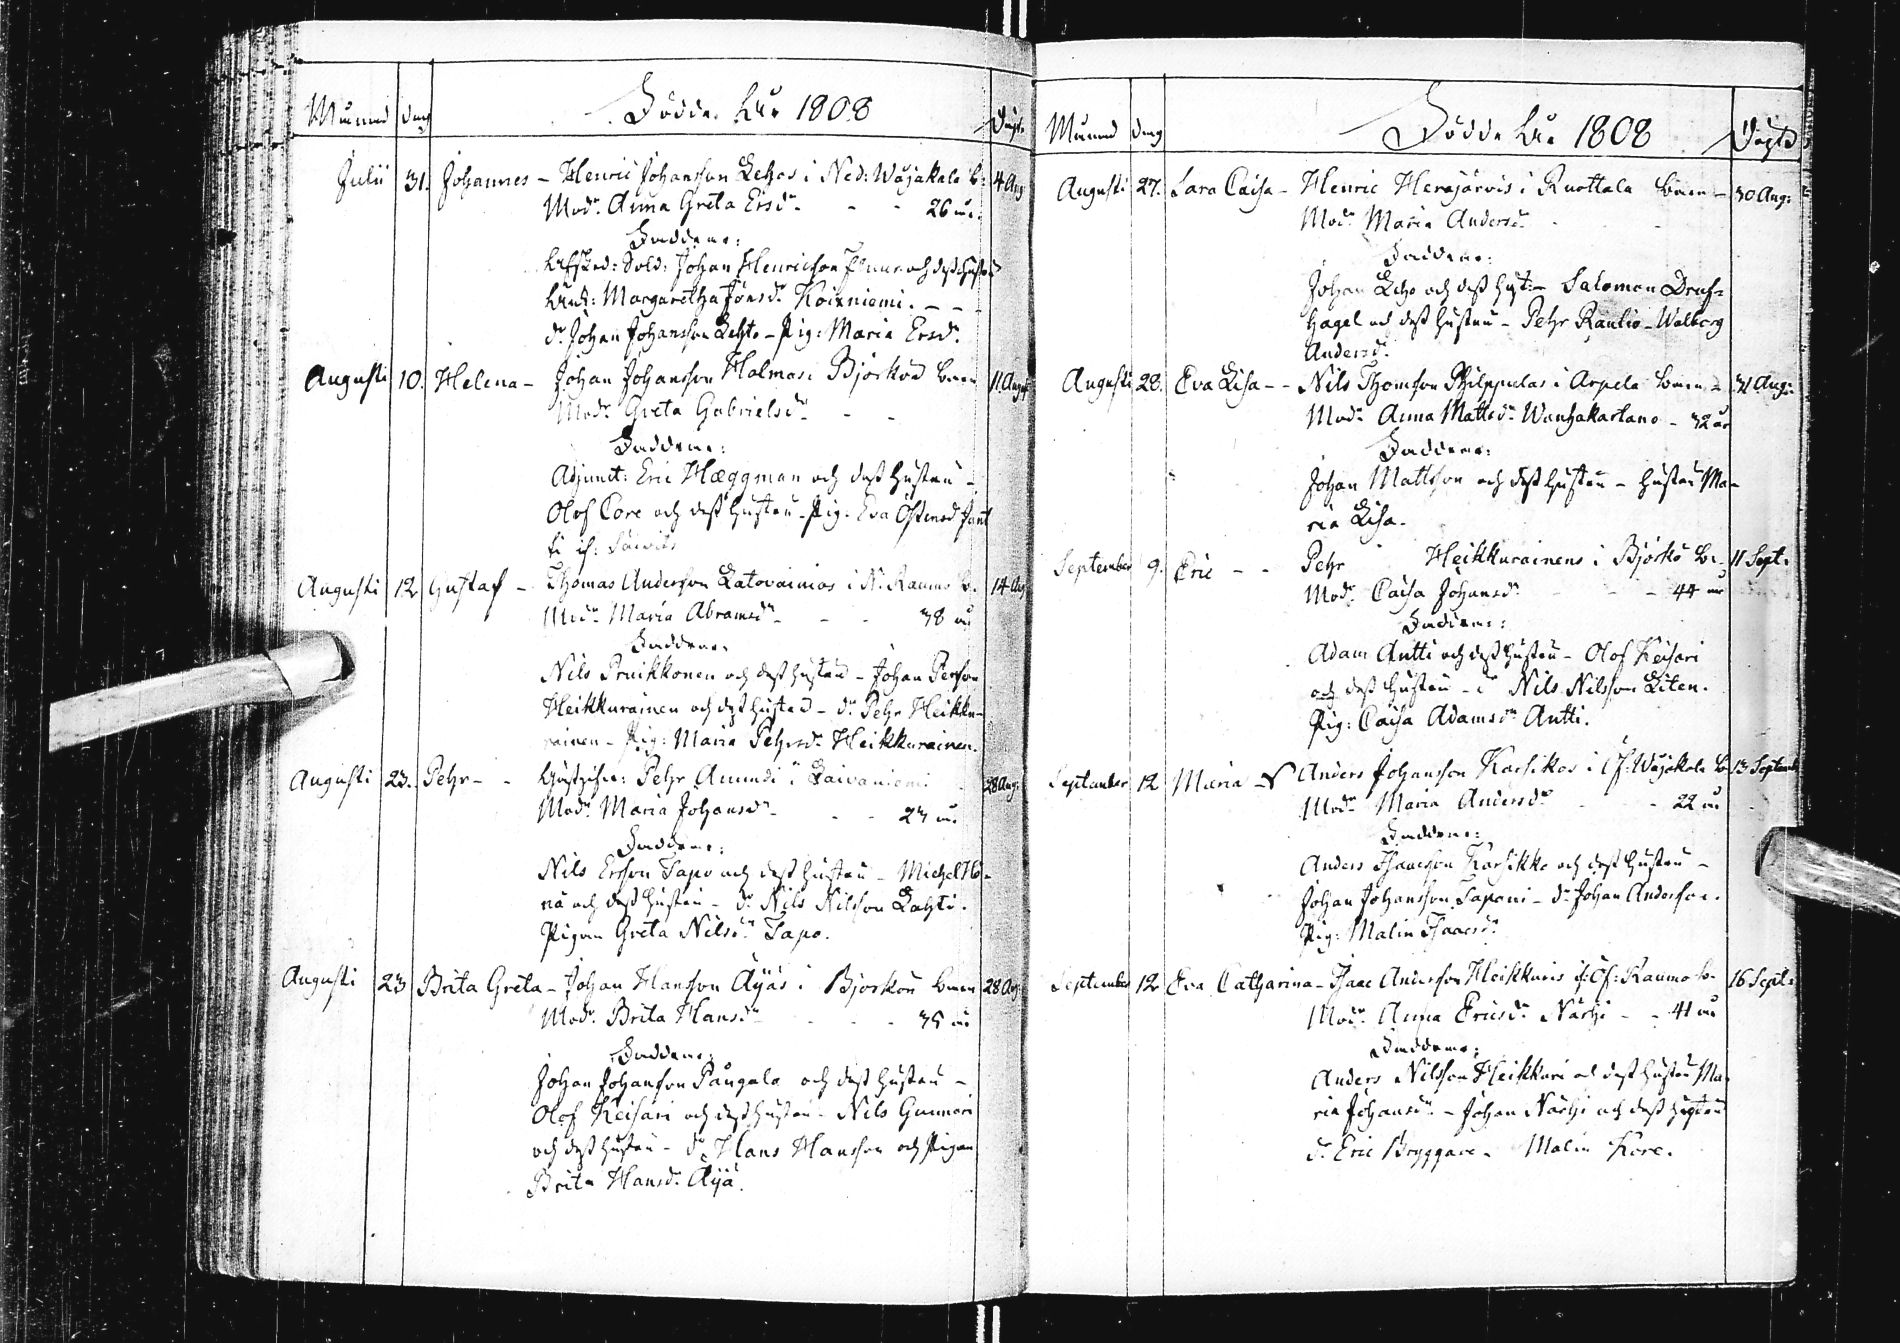 Månad dag Födde År 1808 Döpte
Julii 31. Johannes – Henric Johansson Lehtos i Ned: Wojakala b: 4 Aug
Modr. Anna Greta Ersdr. - - 26 år.
Faddrar:
Afsked: Sold: Johan Henricson och dess hustru
Änk: Margaretha Jönsdr. Koivuniemi. – –
dr. Johan Johansson Lehto – Pig: Maria Ersdr.
Augusti 10. Helena – Johan Johansson Halmas i Björkön byen 11. Aug:
Modr. Greta Gabrielsdr. - -
Faddrar:
Adjunct: Eric Hæggman och dess hustru –
Olof Core och dess hustru – Pig: Eva Östensd
Augusti 12 Gustaf – Thomas Andersson Latovainios i N: Raumo b. 14 Aug
Modr. Maria Abramsdr. - - 38 år
Faddrar:
Nils Pruikkonen och dess hustru – Johan Persson
Heikkurainen och dess hustru – dr. Pehr Heikku-
rainen – Pig: Maria Pehrsdr. Heikkurainen.
Augusti 23. Pehr – - Pehr Amundi i Laivaniemi 28 Aug:
Modr. Maria Johansdr. - - 23 år.
Faddrar:
Nils Ersson Tapo och dess hustru – Michel
och dess hustru – dr. Nils Nilsson Lahti.
Pigan Greta Nilsdr. Tapo.
Augusti 23 Brita Greta – Johan Hansson Äyäs i Björkön byen 28 Aug:
Modr. Brita Hansdr. - - - 35 år
Faddrar:
Johan Johansson Pångala och dess hustru –
Olof Keisari och dess hustru – Nils Gunnari
och dess hustru – dr. Hans Hansson och Pigan
Brita Hansdr. Äyä.
Månad dag Födde År 1808 Döpte
Augusti 27. Sara Caisa – Henric Herajärvis i Ruottala byen – 30 Aug:
Modr. Maria Andersdr.
Faddrar:
Johan Leho och dess hust: – Salomon Druf-
hagel och dess hustru – Pehr Rautio – Walborg
Andersdr.
Augusti 28. Eva Lisa – – Nils Thomson Philppulas i Arpela byen – 31 Aug:
Modr. Anna Matsdr. Wanhakartano – 32 år
Faddrar:
Johan Mattsson och dess hustru – hustru Ma-
ria Lisa.
September 9. Eric – - Pehr Heikkurainens i Björkö b: 11 Sept:
Modr. Caisa Johansdr. - - 44 år
Faddrar:
Adam Antti och dess hustru – Olof Keisari
och dess hustru – dr Nils Nilsson Liten.
Pig: Caisa Adamsdr. Antti.
September 12 Maria – Anders Johansson Karsikos i Öf: Wojakala b 13 September
Modr. Maria Andersdr. - 22 år
Faddrar:
Anders Isaacsson Karsikko och dess hustru –
Johan Johansson Taponi – dr. Johan Andersson.
Pig: Malin Isaacsdr.
September 12 Eva Catharina – Isaac Andersson Heikkuris i Öf: Raumo b. 16 Sept:
Modr. Anna Ericsdr. Närhi – – 41 år
Faddrar:
Anders Nilsson Heikkuri och dess hustru Ma-
ria Johansdr. – Johan Närhi och dess hustru
dr. Eric Bryggare – Malin Kore.